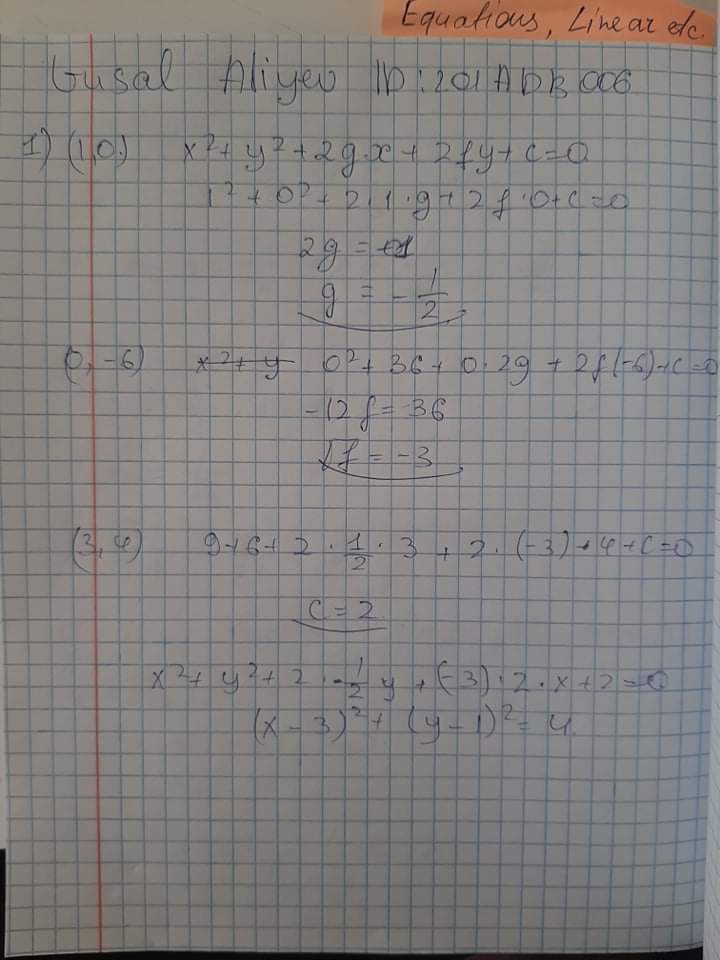 Equations, Linear etc.
Gusal Aliyev ID:201ADB006
1) (1,0) x²+ y²+2g·x+ 2fy+ c=0
1²+ 0²+ 2·1·g+ 2f·0+c=0
2g =
g = -1/2
(0, -6) x²+ y 0²+ 36+ 0·2g + 2f(-6)+c=0
-12f= 36
f = -3
(3, 4) 9+6+ 2 · 1/2 · 3 + 2· (-3)+4+c=0
c=2
x²+ y²+ 2 ·-1/2 y +(-3)·2·x+2=0
(x-3)²+ (y-1)²= 4